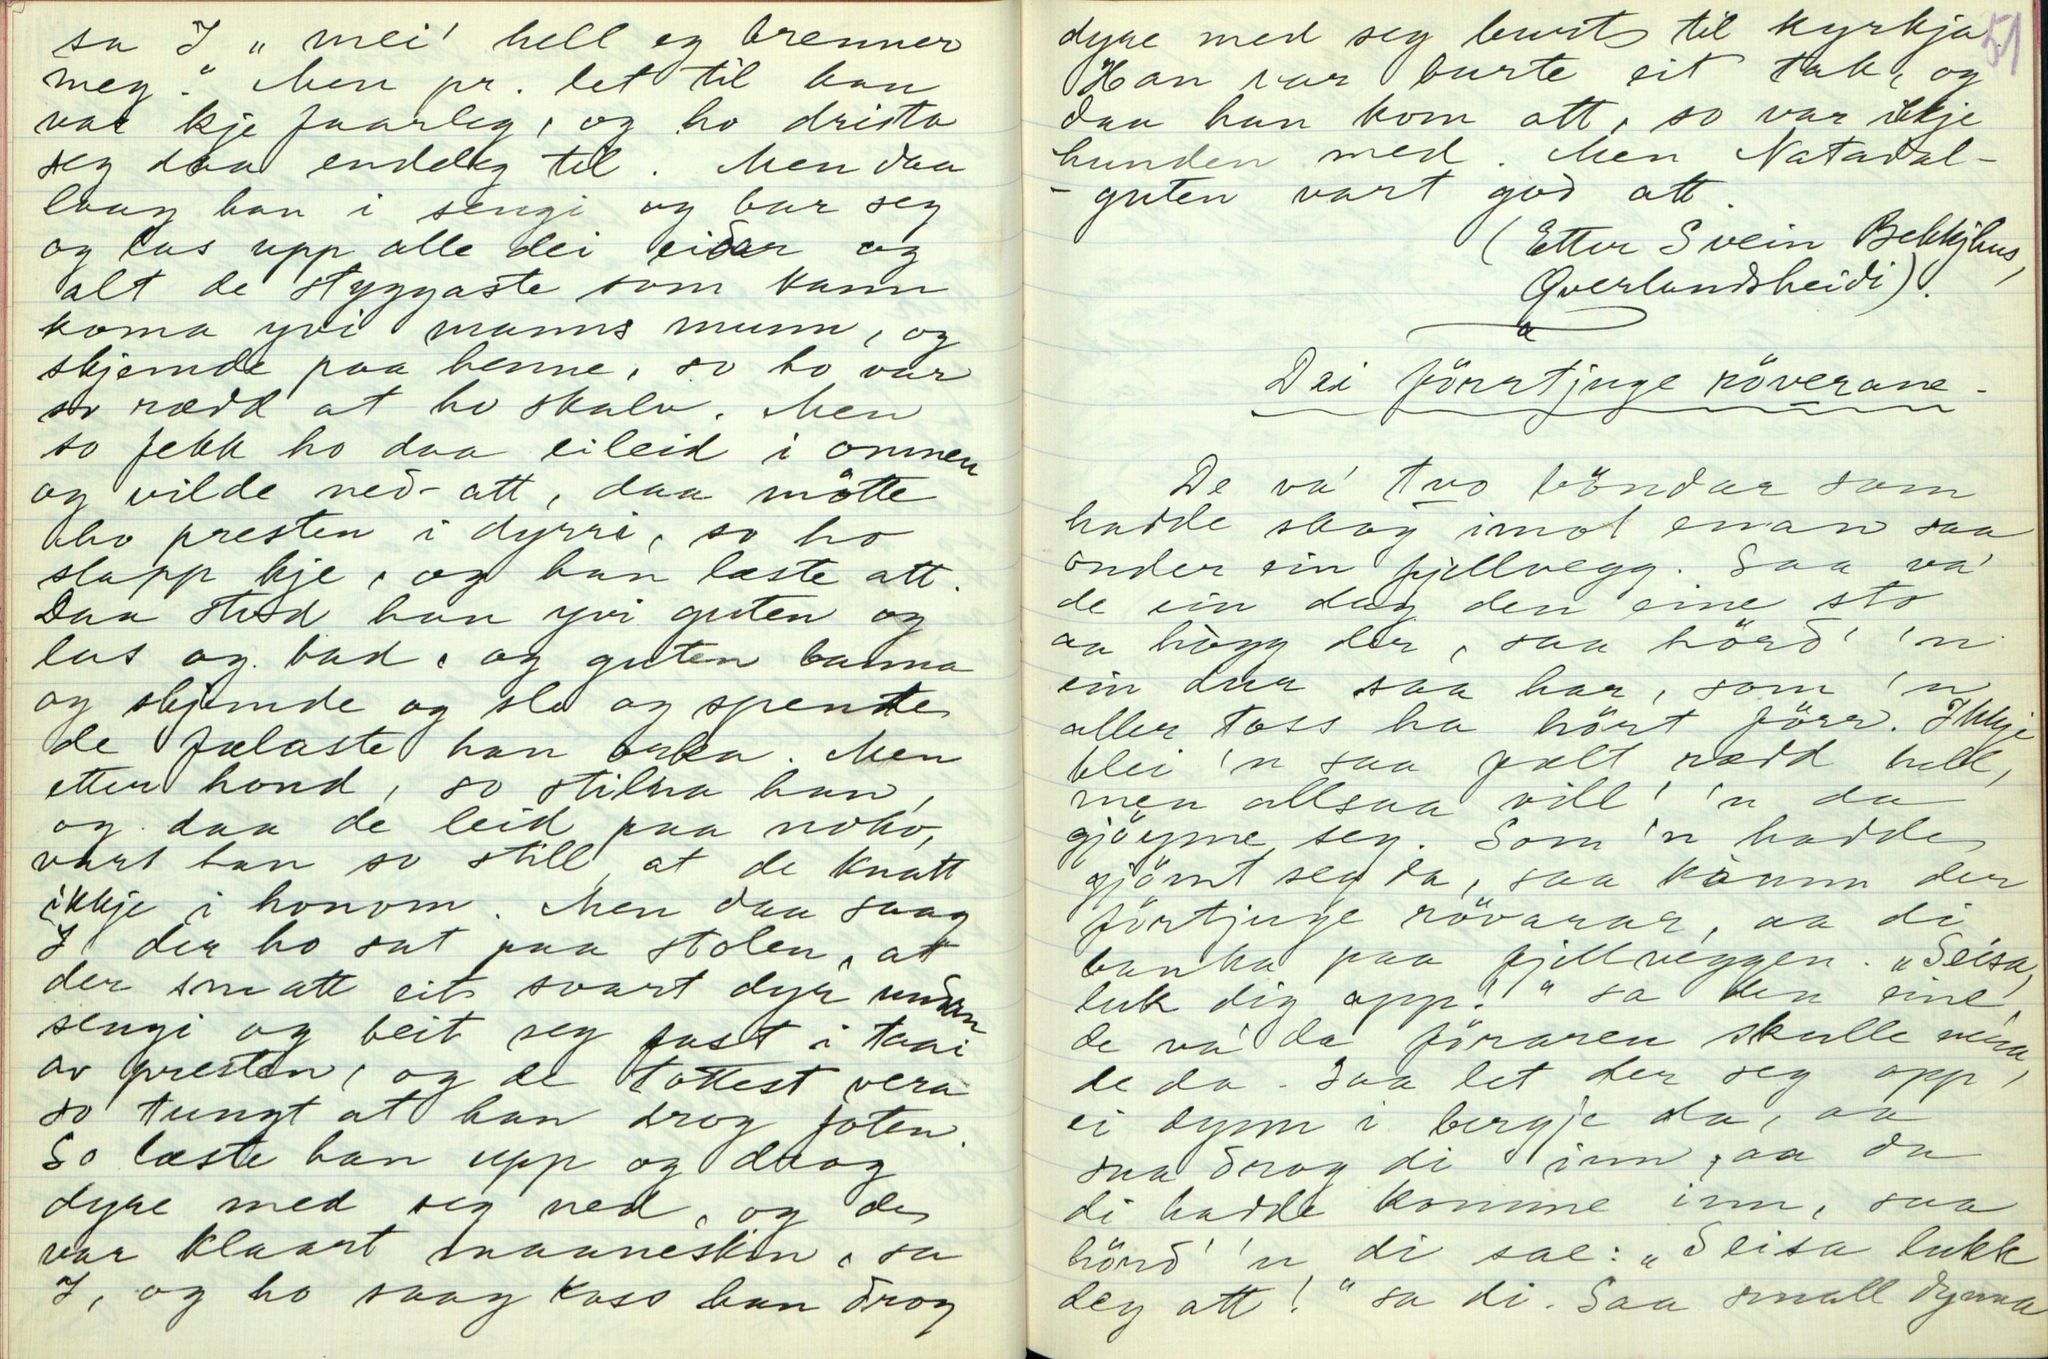 sa I „mei' hell eg brenner
meg." Men pr. let til han
var kje faarleg, og ho drista
seg daa endeleg til. Men daa
laag han i sengi og bar seg
og las upp alle dei eidar og
alt de styggaste som kann
koma yvi manns munn, og
skjemde paa henne, so ho var
so rædd at ho skalv. Men
so fekk ho daa eileid i omnen
og vilde ned-att, daa mötte
ho presten i dyrri, so ho
slapp kje, og han læste att.
Daa stod han yvi guten og
las og bad, og guten banna
og skjemde og slo og spente
de fælaste han orka. Men
etter hond, so stilna han,
og daa de leid paa noko,
vart han so still at de knatt
ikkje i honom. Men daa saag
I der ho sat paa stolen, at
der smatt eit svart dyr undan
sengi og beit seg fast i taai
av presten, og de tottest vera
so tungt at han drog foten.
So læste han upp og drog
dyre med seg ned, og de
var klaart maaneskin, sa
I, og ho saag koss han drog
dyre med seg burt til kyrkja.
51
Han var burte eit tak, og
daa han kom att, so var ikkje
hunden med. Men Natadal-
-guten vart god att.
(Etter Svein Bekkjhus,
Qverlandsheidi).
Dei förrtjuge röverane.
De va' tvo böndar som
hadde skog imot enan saa
onder ein fjellvegg. Saa va'
de ein dag den eine sto
aa högg der, saa hörd' 'n
ein dur saa har, som 'n
aller tass ha hört förr. Ikkje
blei 'n saa fælt rædd hell,
men allsaa vill' 'n da
gjöyme seg. Som 'n hadde
gjömt seg da, saa kàmm der
förtjuge rövarar, aa di
banka paa fjellveggen. „Seisa,
luk dig opp!" sa den eine,
de va' da föraren skulle vera,
de da. Saa let der seg opp
ei dynn i bergje da, aa
saa drog di inn, aa da
di hadde komme inn, saa
hörd' 'n di sae: „Seisa lukk
deg att!" sa di. Saa small dynna